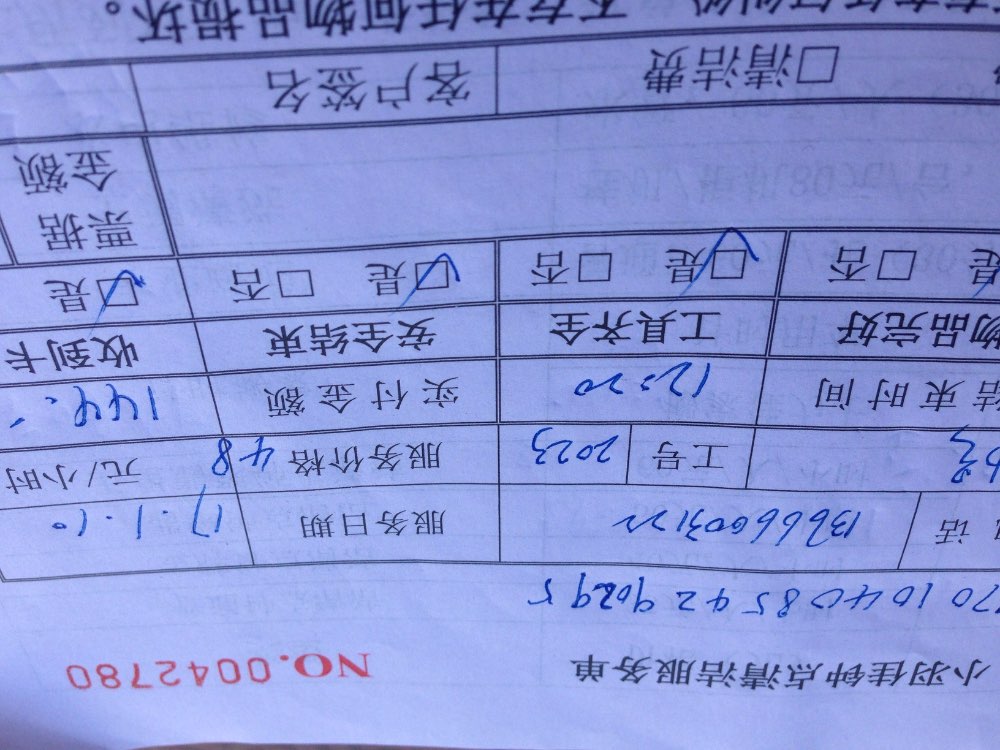 小羽佳钟点清洁服务单 NO.0042780
701040854290295
话 13666003122 服务日期 17.1.10
工号 2023 服务价格 48 元/小时
结束时间 12:20 实付金额 144.-
物品完好 工具齐全 安全结束 收到卡
是 □否 □是 □否 □是 □否 □是
票据
金额
□清洁费 客户签名
不存在任何物品损坏。